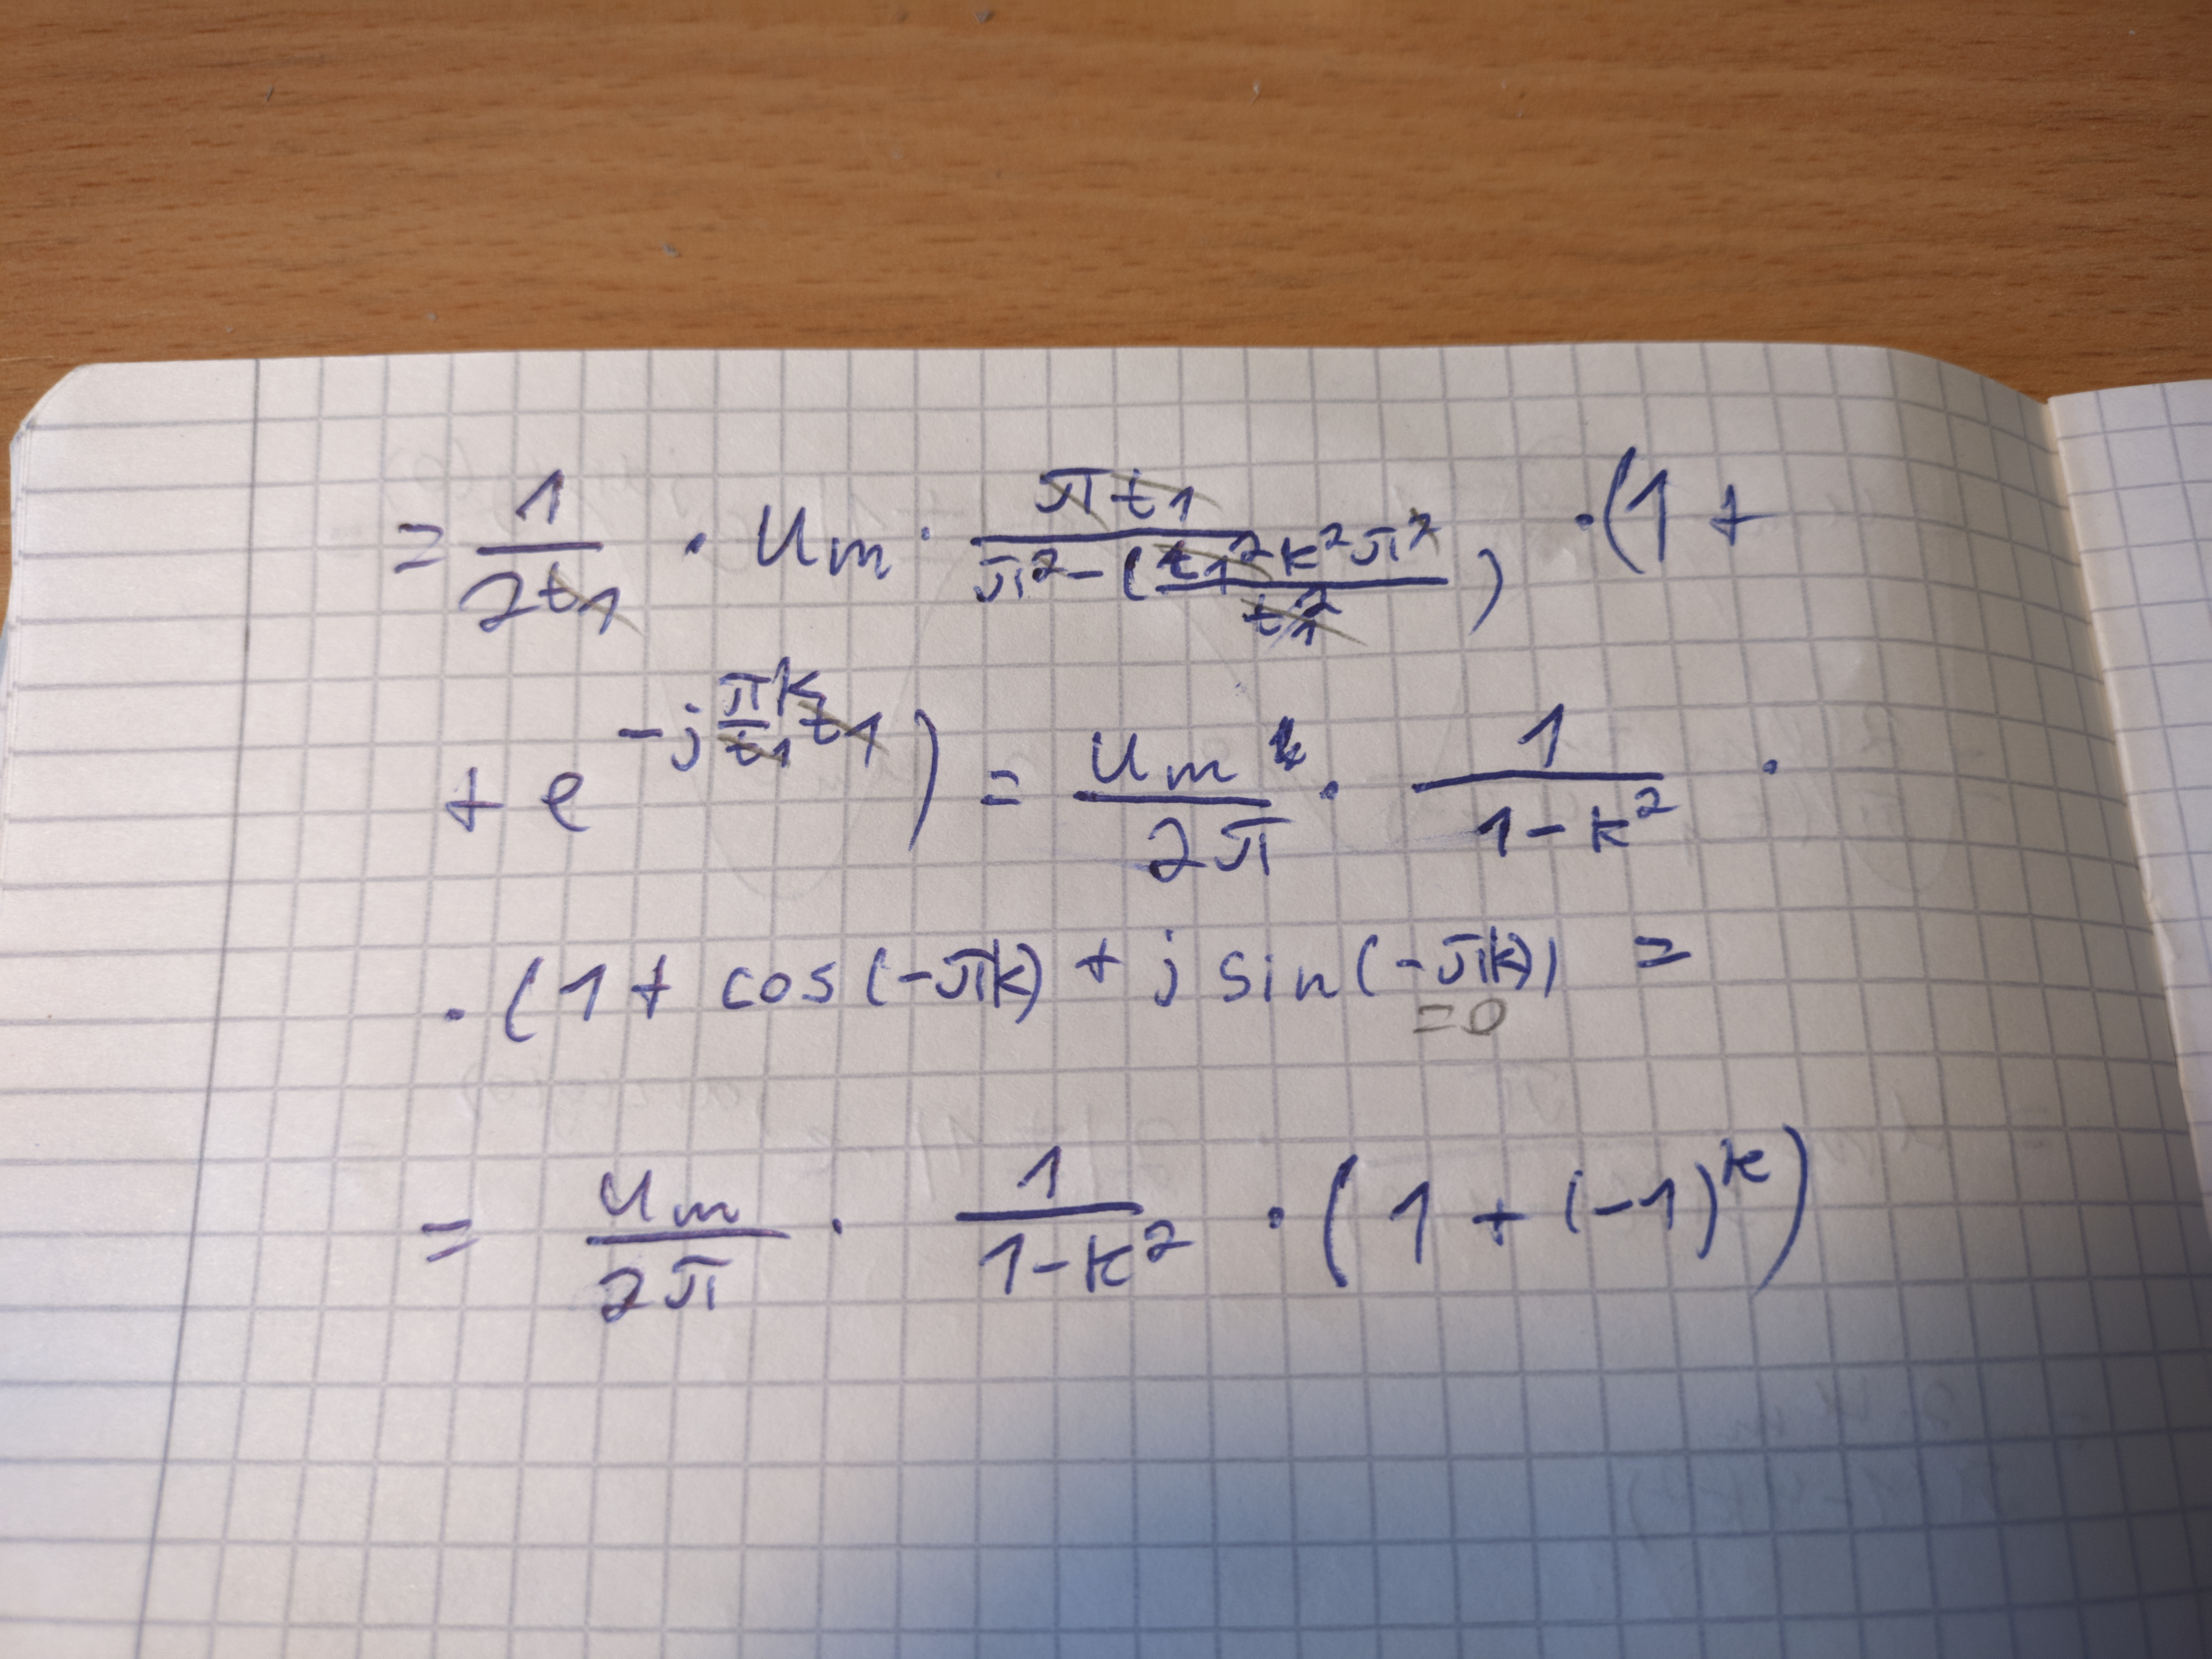 = 1/(2t₁) · Um · πt₁/(π² - (t₁²k²π²/t₁²)) · (1 +
+ e^(-j (πk/t₁) t₁)) = Um/(2π) · 1/(1-k²) ·
· (1 + cos(-πk) + j sin(-πk)) =
=0
= Um/(2π) · 1/(1-k²) · (1 + (-1)^k)